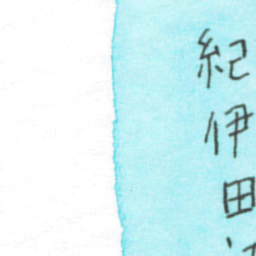 紀伊田